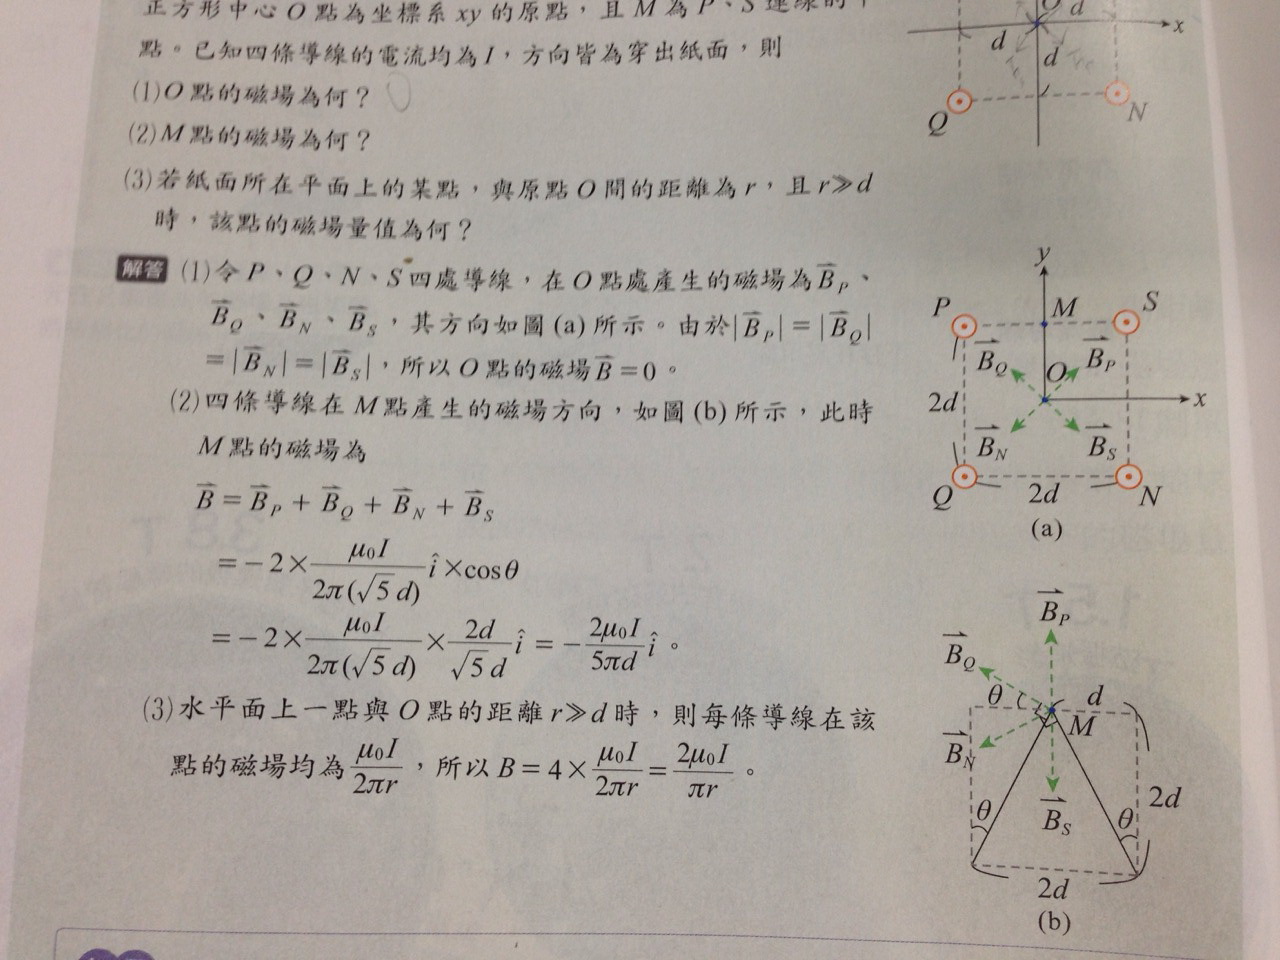 正方形中心O點為坐標系xy的原點,且M為P、S連線的中
點。已知四條導線的電流均為I,方向皆為穿出紙面,則
(1)O點的磁場為何?
(2)M點的磁場為何?
(3)若紙面所在平面上的某點,與原點O間的距離為r,且r≫d
時,該點的磁場量值為何?
O
d
x
d
d
Q
N
解答 (1)令P、Q、N、S四處導線,在O點處產生的磁場為B⃗P、
B⃗Q、B⃗N、B⃗S,其方向如圖(a)所示。由於|B⃗P|=|B⃗Q|
=|B⃗N|=|B⃗S|,所以O點的磁場B⃗=0。
(2)四條導線在M點產生的磁場方向,如圖(b)所示,此時
M點的磁場為
B⃗=B⃗P+B⃗Q+B⃗N+B⃗S
=-2×μ₀I/2π(√5d) î×cosθ
=-2×μ₀I/2π(√5d)×2d/√5d î=-2μ₀I/5πd î。
(3)水平面上一點與O點的距離r≫d時,則每條導線在該
點的磁場均為μ₀I/2πr,所以B=4×μ₀I/2πr=2μ₀I/πr。
y
P
M
S
B⃗Q
O
B⃗P
2d
x
B⃗N
B⃗S
Q
2d
N
(a)
B⃗P
B⃗Q
θ
d
M
B⃗N
2d
θ
B⃗S
θ
2d
(b)